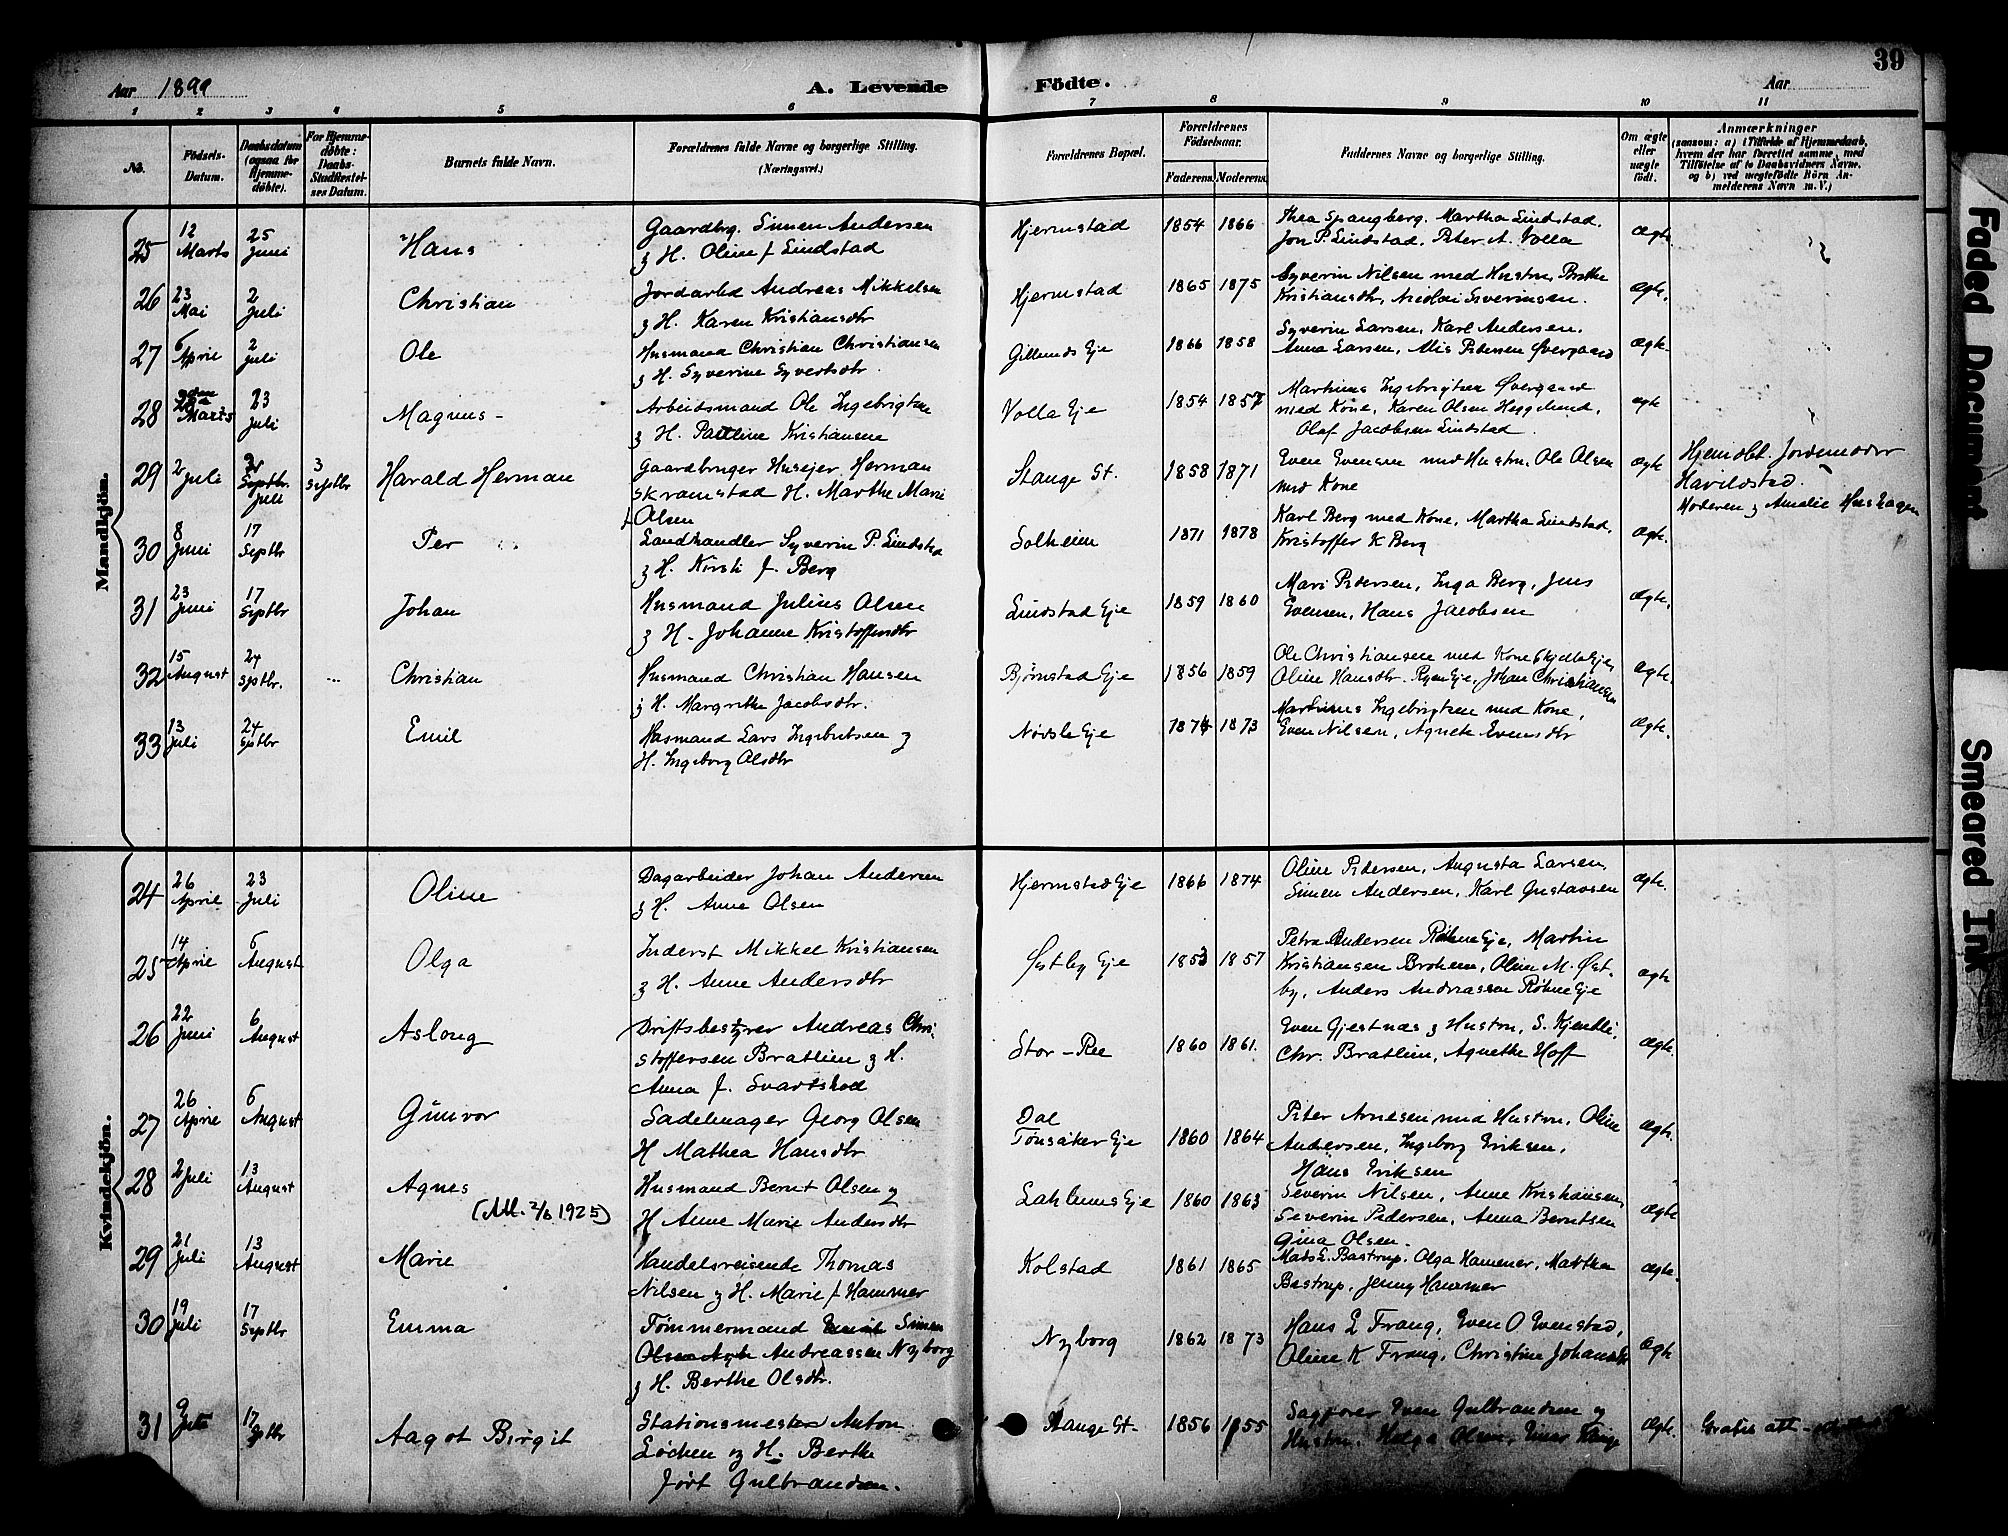 39
Aar 1899
A. Levende Födte.
Aar
1 2 3 4 5 6 7 8 9 10 11
No.
Födsels-Datum.
Daabsdatum (ogsaa for Hjemmedöbte).
For Hjemmedöbte: Daabs-Stadfæstelses Datum.
Barnets fulde Navn.
Forældrenes fulde Navne og borgerlige Stilling. (Næringsvei.)
Forældrenes Bopæl.
Forældrenes Födselsaar.
Faderens. Moderens.
Faddernes Navne og borgerlige Stilling.
Om ægte eller uægte födt.
Anmærkninger
(saasom: a) i Tilfælde af Hjemmedaab, hvem der har forrettet samme, med Tilföielse af to Daabsvidners Navne. og b) ved uægtefödte Börn Anmelderens Navn m. V.)
Mandkjön.
25 12 Marts 25 Juni Hans Gaardbrg. Simen Andersen Hjermstad 1854 1866 Thea Spangberg. Martha Lindstad. Ægte
& H. Oline f Lindstad Jon P. Lindstad. Peter A. Volla
26 23 Mai 2 Juli Christian Jordarbd Andreas Mikkelsen Hjermstad 1865 1875 Syverin Nilsen med Hustru, Berthe Ægte.
& H. Karen Kristiansdtr Kristiansdtr, Nicolai Severinsen.
27 6 April 2 Juli Ole Husmand Christian Christiansen Gillunds Eje 1866 1858 Syverin Larsen, Karl Andersen. Ægte.
& H. Syverine Syvertsdtr. Anna Larsen, Alis Pedersen Øvergaard
28 Marts 23 Juli Magnus - Arbeidsmand Ole Ingebrigtsen Volla Eje 1854 1857 Martinus Ingebrigtsen Øvergaard ægte
& H. Pauline Kristiansen med Kone, Karen Olsen Heggelund,
Olaf Jacobsen Lindstad.
29 2 Juli Septbr. Juli 3 Septbr Harald Herman Gaardbruger Husejer Herman Stange St. 1858 1871 Even Evensen med Hustru, Ole Olsen Ægte Hjemdbt. Jordemoder
Skramstad H. Marthe Marie med Kone Havildstad.
f Olsen Moderen & Amalie Hershagen
30 8 Juni 17 Septbr Per Landhandler Syverin P. Lindstad Solheim 1871 1878 Karl Berg med Kone, Martha Lindstad, Ægte.
& H. Kirsti f. Berg Kristoffer K Berg
31 23 Juni 17 Septbr Johan Husmand Julius Olsen Lindstad Eje 1859 1860 Mari Pedersen, Inga Berg, Jens Ægte.
& H. Johanne Kristoffersdtr Evensen, Hans Jacobsen
32 15 August 24 Septbr. Christian Husmand Christian Hansen Bjørnstad Eje 1856 1859 Ole Christiansen med Kone Ægte.
& H. Margrethe Jacobsdtr. Oline Hansdtr. Ryen Eje, Johan Christiansen
33 13 Juli 24 Septbr Emil Husmand Lars Ingebretsen & Nøvsle Eje 1874 1873 Martinus Ingebrigtsen med Kone, Ægte.
H. Ingeborg Olsdtr Even Nilsen, Agnete Evensdtr
Kvindekjön.
24 26 April 23 Juli Oline Dagarbeider Johan Andersen Hjermstad Eje 1866 1874 Oline Pedersen, Augusta Larsen, Ægte.
& H. Anne Olsen Simen Andersen, Karl Gustavsen
25 14 April 6 August Olga Inderst Mikkel Kristiansen Østby Eje 1853 1857 Petra Andersen Røhne Eje, Martin Ægte
& H. Anne Andersdtr Kristiansen Brohem, Oline M. Øst-
by, Anders Andreassen Røhne Eje
26 22 Juni 6 August Aslaug Driftsbestyrer Andreas Chri- Stor-Ree 1860 1861. Even Gjestnæs & Hustru, S. Kjendli, Ægte.
stoffersen Bratlien & H. Chr. Bratlien, Agnethe Hoff
Anna f. Svartshod
27 26 April 6 August Gunvor Sadelmager Georg Olsen Dal Tønsåker Eje 1860 1864 Peter Arnesen med Hustru, Oline Ægte.
H Mathea Hansdtr Andersen, Ingeborg Eriksen,
Hans Eriksen
28 2 Juli 13 August Agnes Husmand Bernt Olsen & Eje 1860 1863 Severin Nilsen, Anne Kristiansen, Ægte
(Att. 2/6 1925) H Anne Marie Andersdtr Severin Pedersen, Anna Berntsen
Gina Olsen.
29 21 Juli 13 August Marie Handelsreisende Thomas Kolstad 1861 1865 Mads L. Bastrup. Olga Hammer, Martha Ægte.
Nilsen & H. Marie f Hammer Bastrup, Jenny Hammer
30 19 Juli 17 Septbr Emma Tømmermand Simen Nyborg 1862 1873 Hans L Frang, Even O Evenstad, Ægte
Olsen Andreassen Nyborg Oline K Frang, Christine Johansdtr
& H. Berthe Olsdtr.
31 9 17 Septbr Aagot Birgit Stationsmester Anton Stange St. 1856 1855 Even Gulbrandsen & Ægte. Gratis att
Løchen og H. Berthe Hustru, Helga Olsen, Einar
født Gulbrandsen.
Faded Document
Smeared Ink